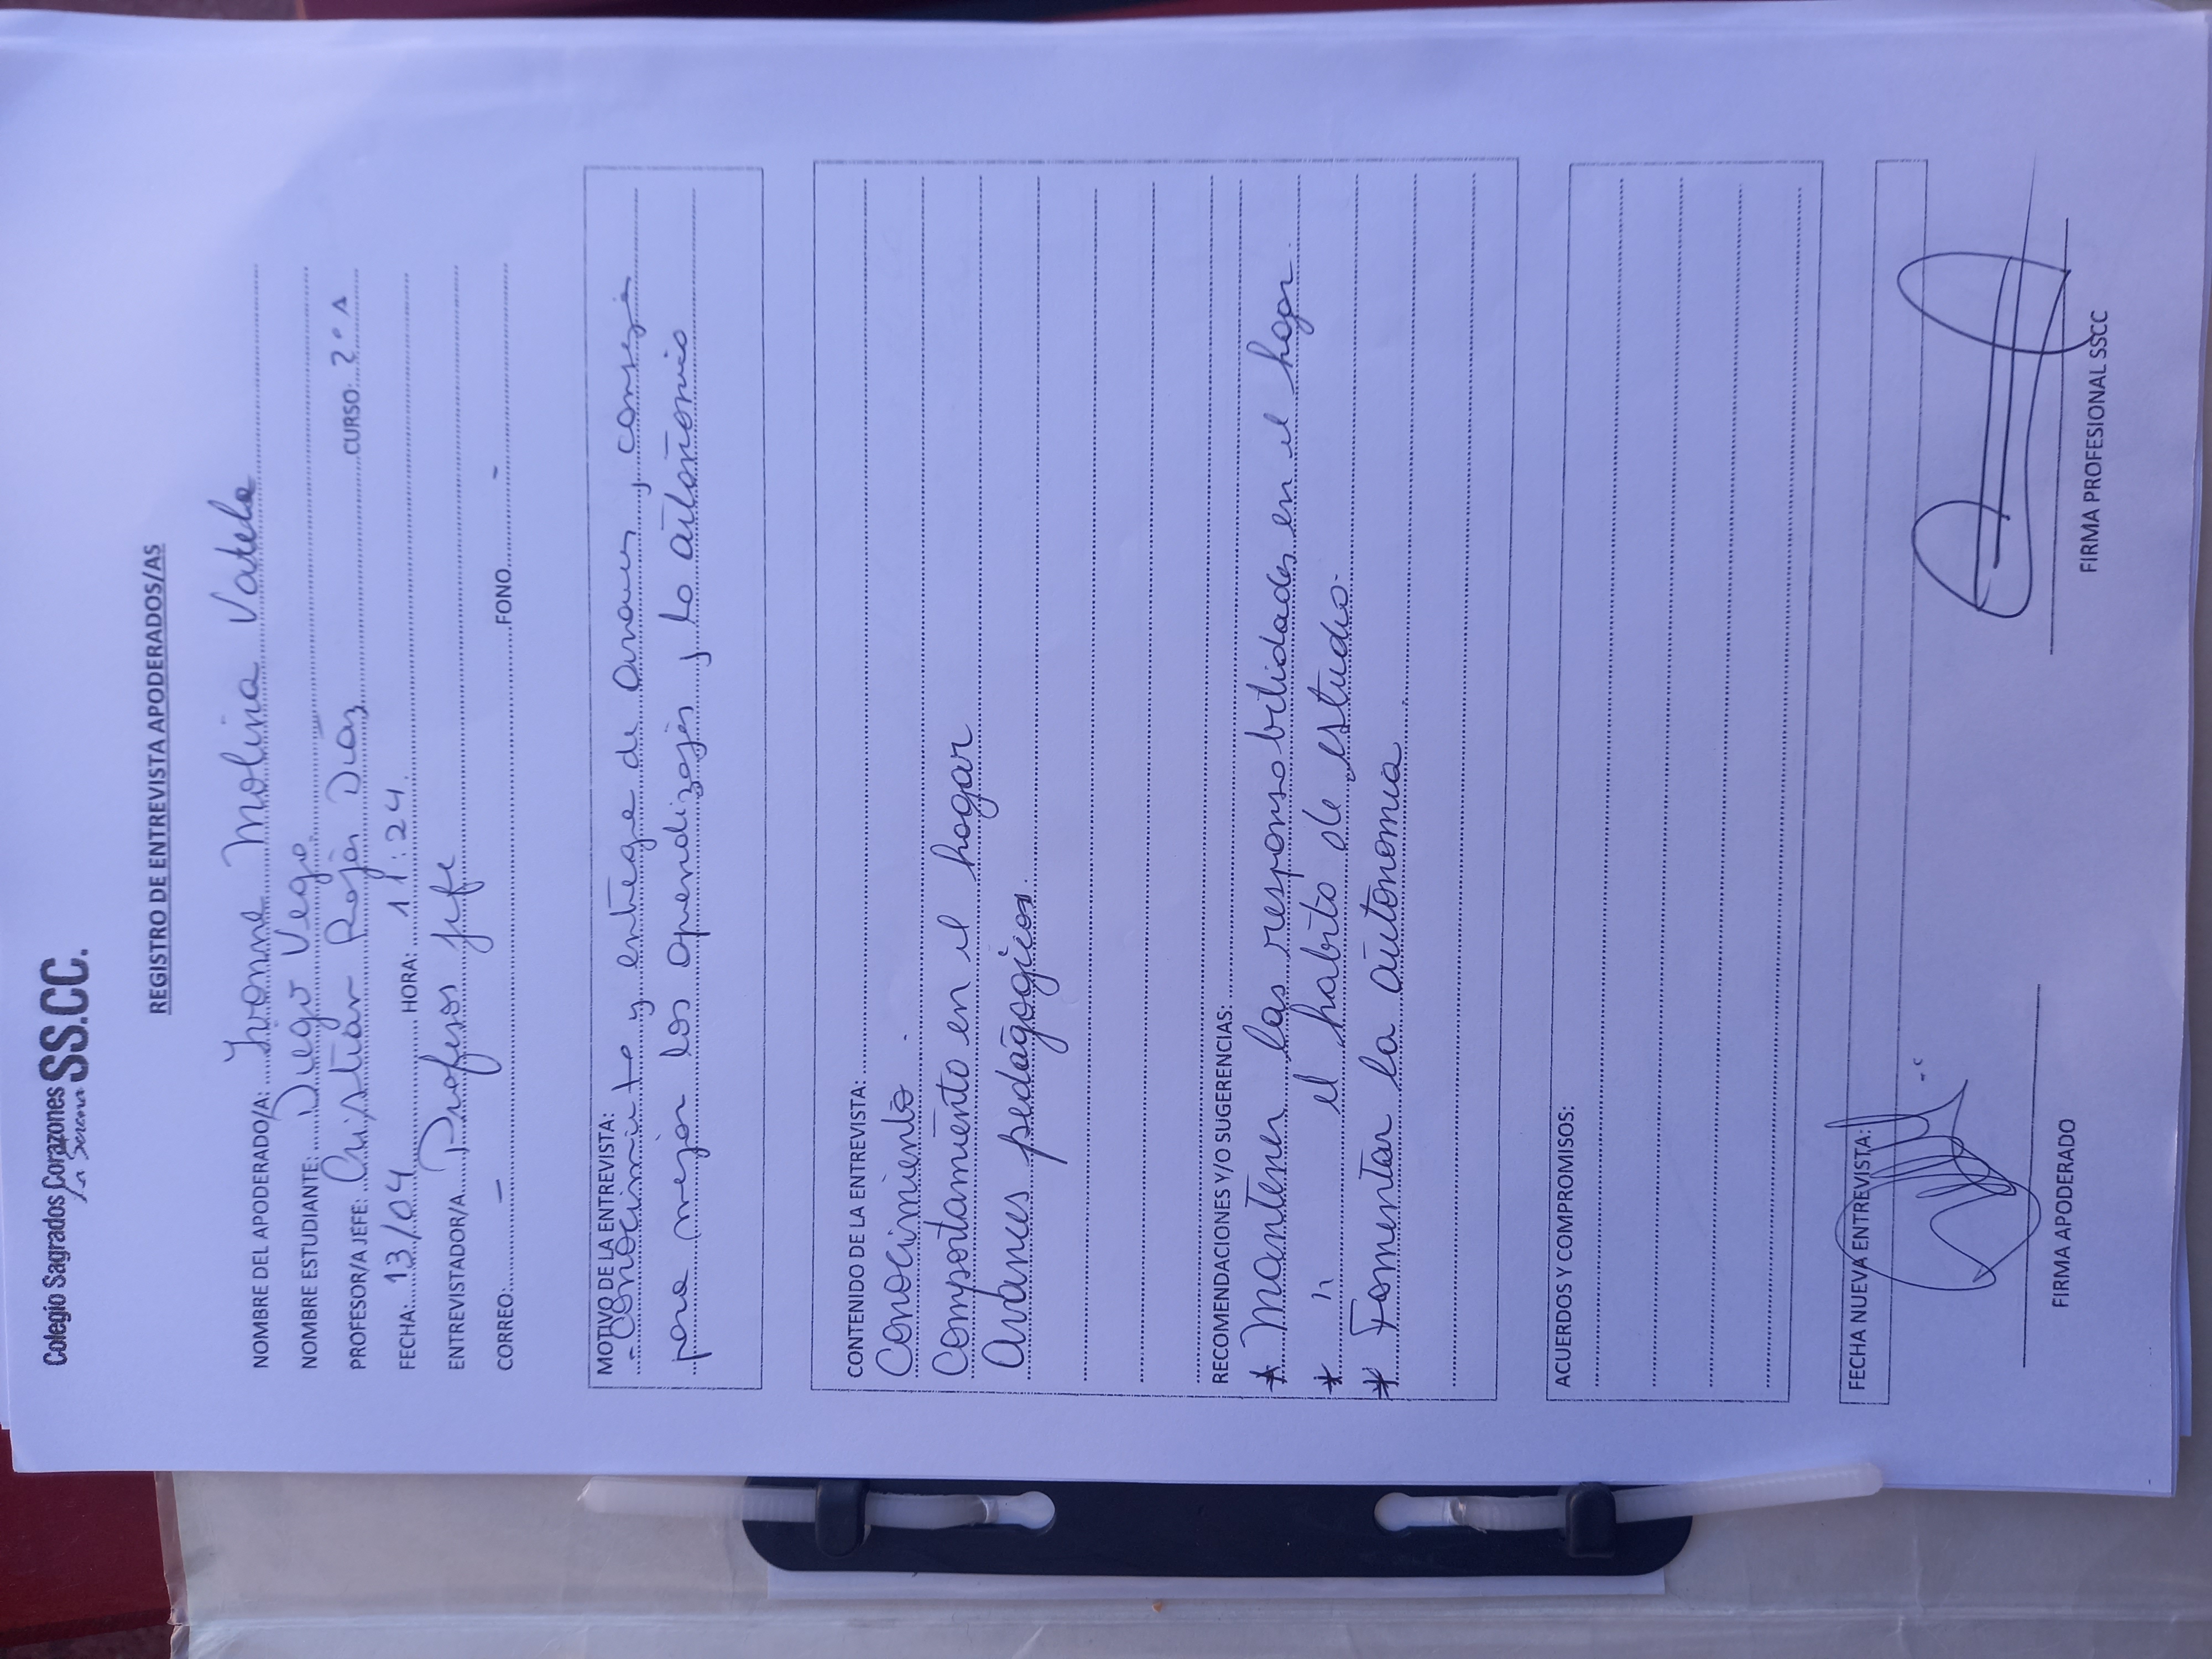 Colegio Sagrados Corazones SS.CC.
La Serena
REGISTRO DE ENTREVISTA APODERADOS/AS
NOMBRE DEL APODERADO/A: Ivonne Molina Varela
NOMBRE ESTUDIANTE: Diego Vega
PROFESOR/A JEFE: Christian Rojas Díaz CURSO: 2° A
FECHA: 13/04 HORA: 11:24
ENTREVISTADOR/A Profesor jefe
CORREO: - FONO -
MOTIVO DE LA ENTREVISTA:
- Conocimiento y entrega de avances, consejos
para mejorar los aprendizajes y la autonomía
CONTENIDO DE LA ENTREVISTA:
Conocimiento.
Comportamiento en el hogar
Avances pedagógicos.
RECOMENDACIONES Y/O SUGERENCIAS:
* Mantener las responsabilidades en el hogar.
* " el habito de estudio.
* Fomentar la autonomia
ACUERDOS Y COMPROMISOS:
FECHA NUEVA ENTREVISTA:
FIRMA APODERADO
FIRMA PROFESIONAL SSCC